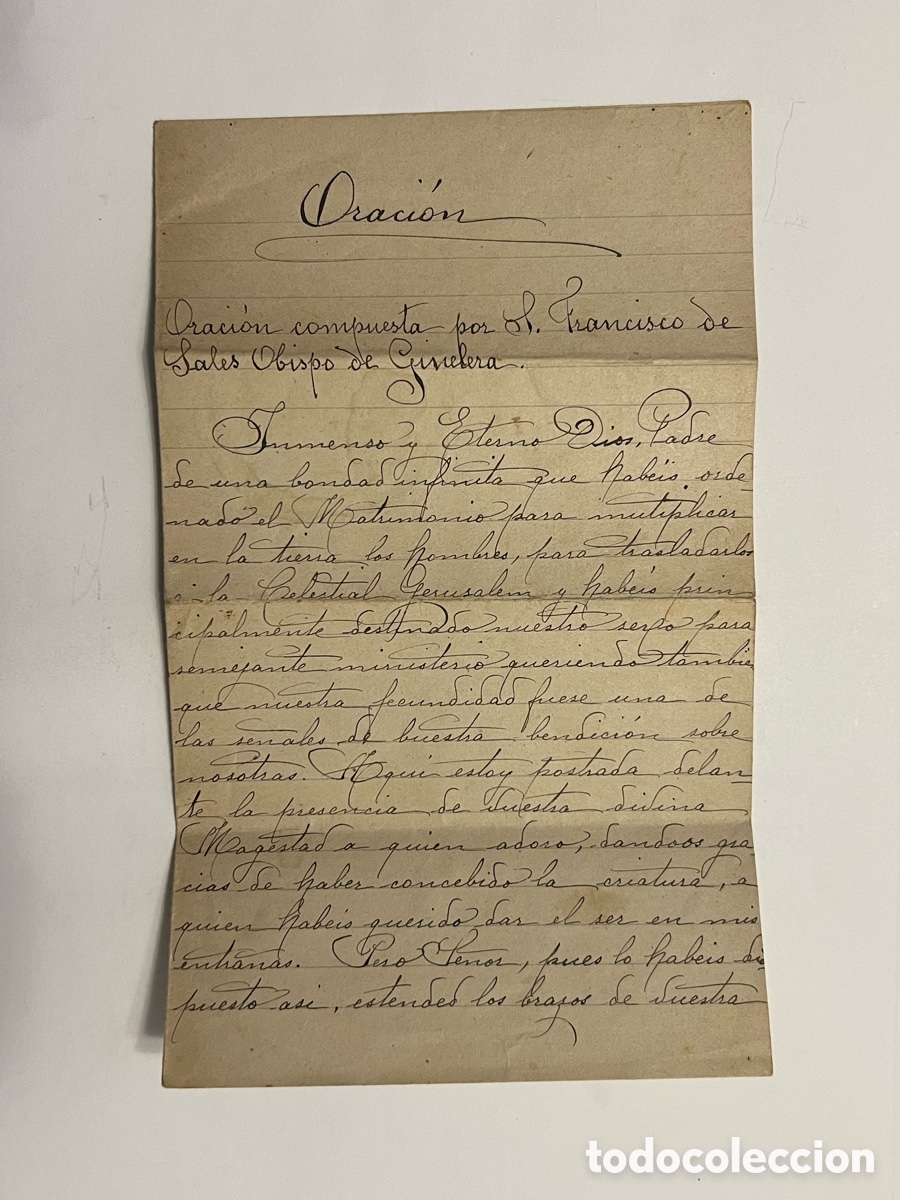 Oración
Oración compuesta por S. Francisco de
Sales Obispo de Ginebra.
Inmenso y Eterno Dios, Padre
de una bondad infinita que habéis orde
nado el Matrimonio para mutiplicar
en la tierra los hombres, para trasladarlos
a la Celestial Gerusalem y habéis prin
cipalmente destinado nuestro sexo para
semejante ministerio queriendo tambie
que nuestra fecundidad fuese una de
las senales de buestra bendición sobre
nosotras. Aqui estoy postrada delan-
te la presencia de vuestra divina
Magestad a quien adoro, dandoos gra
cias de haber concebido la criatura, a
quien habeis querido dar el ser en mis
entranas. Pero Señor, pues lo habeis dis
puesto asi, estended los brazos de vuestra
todocoleccion